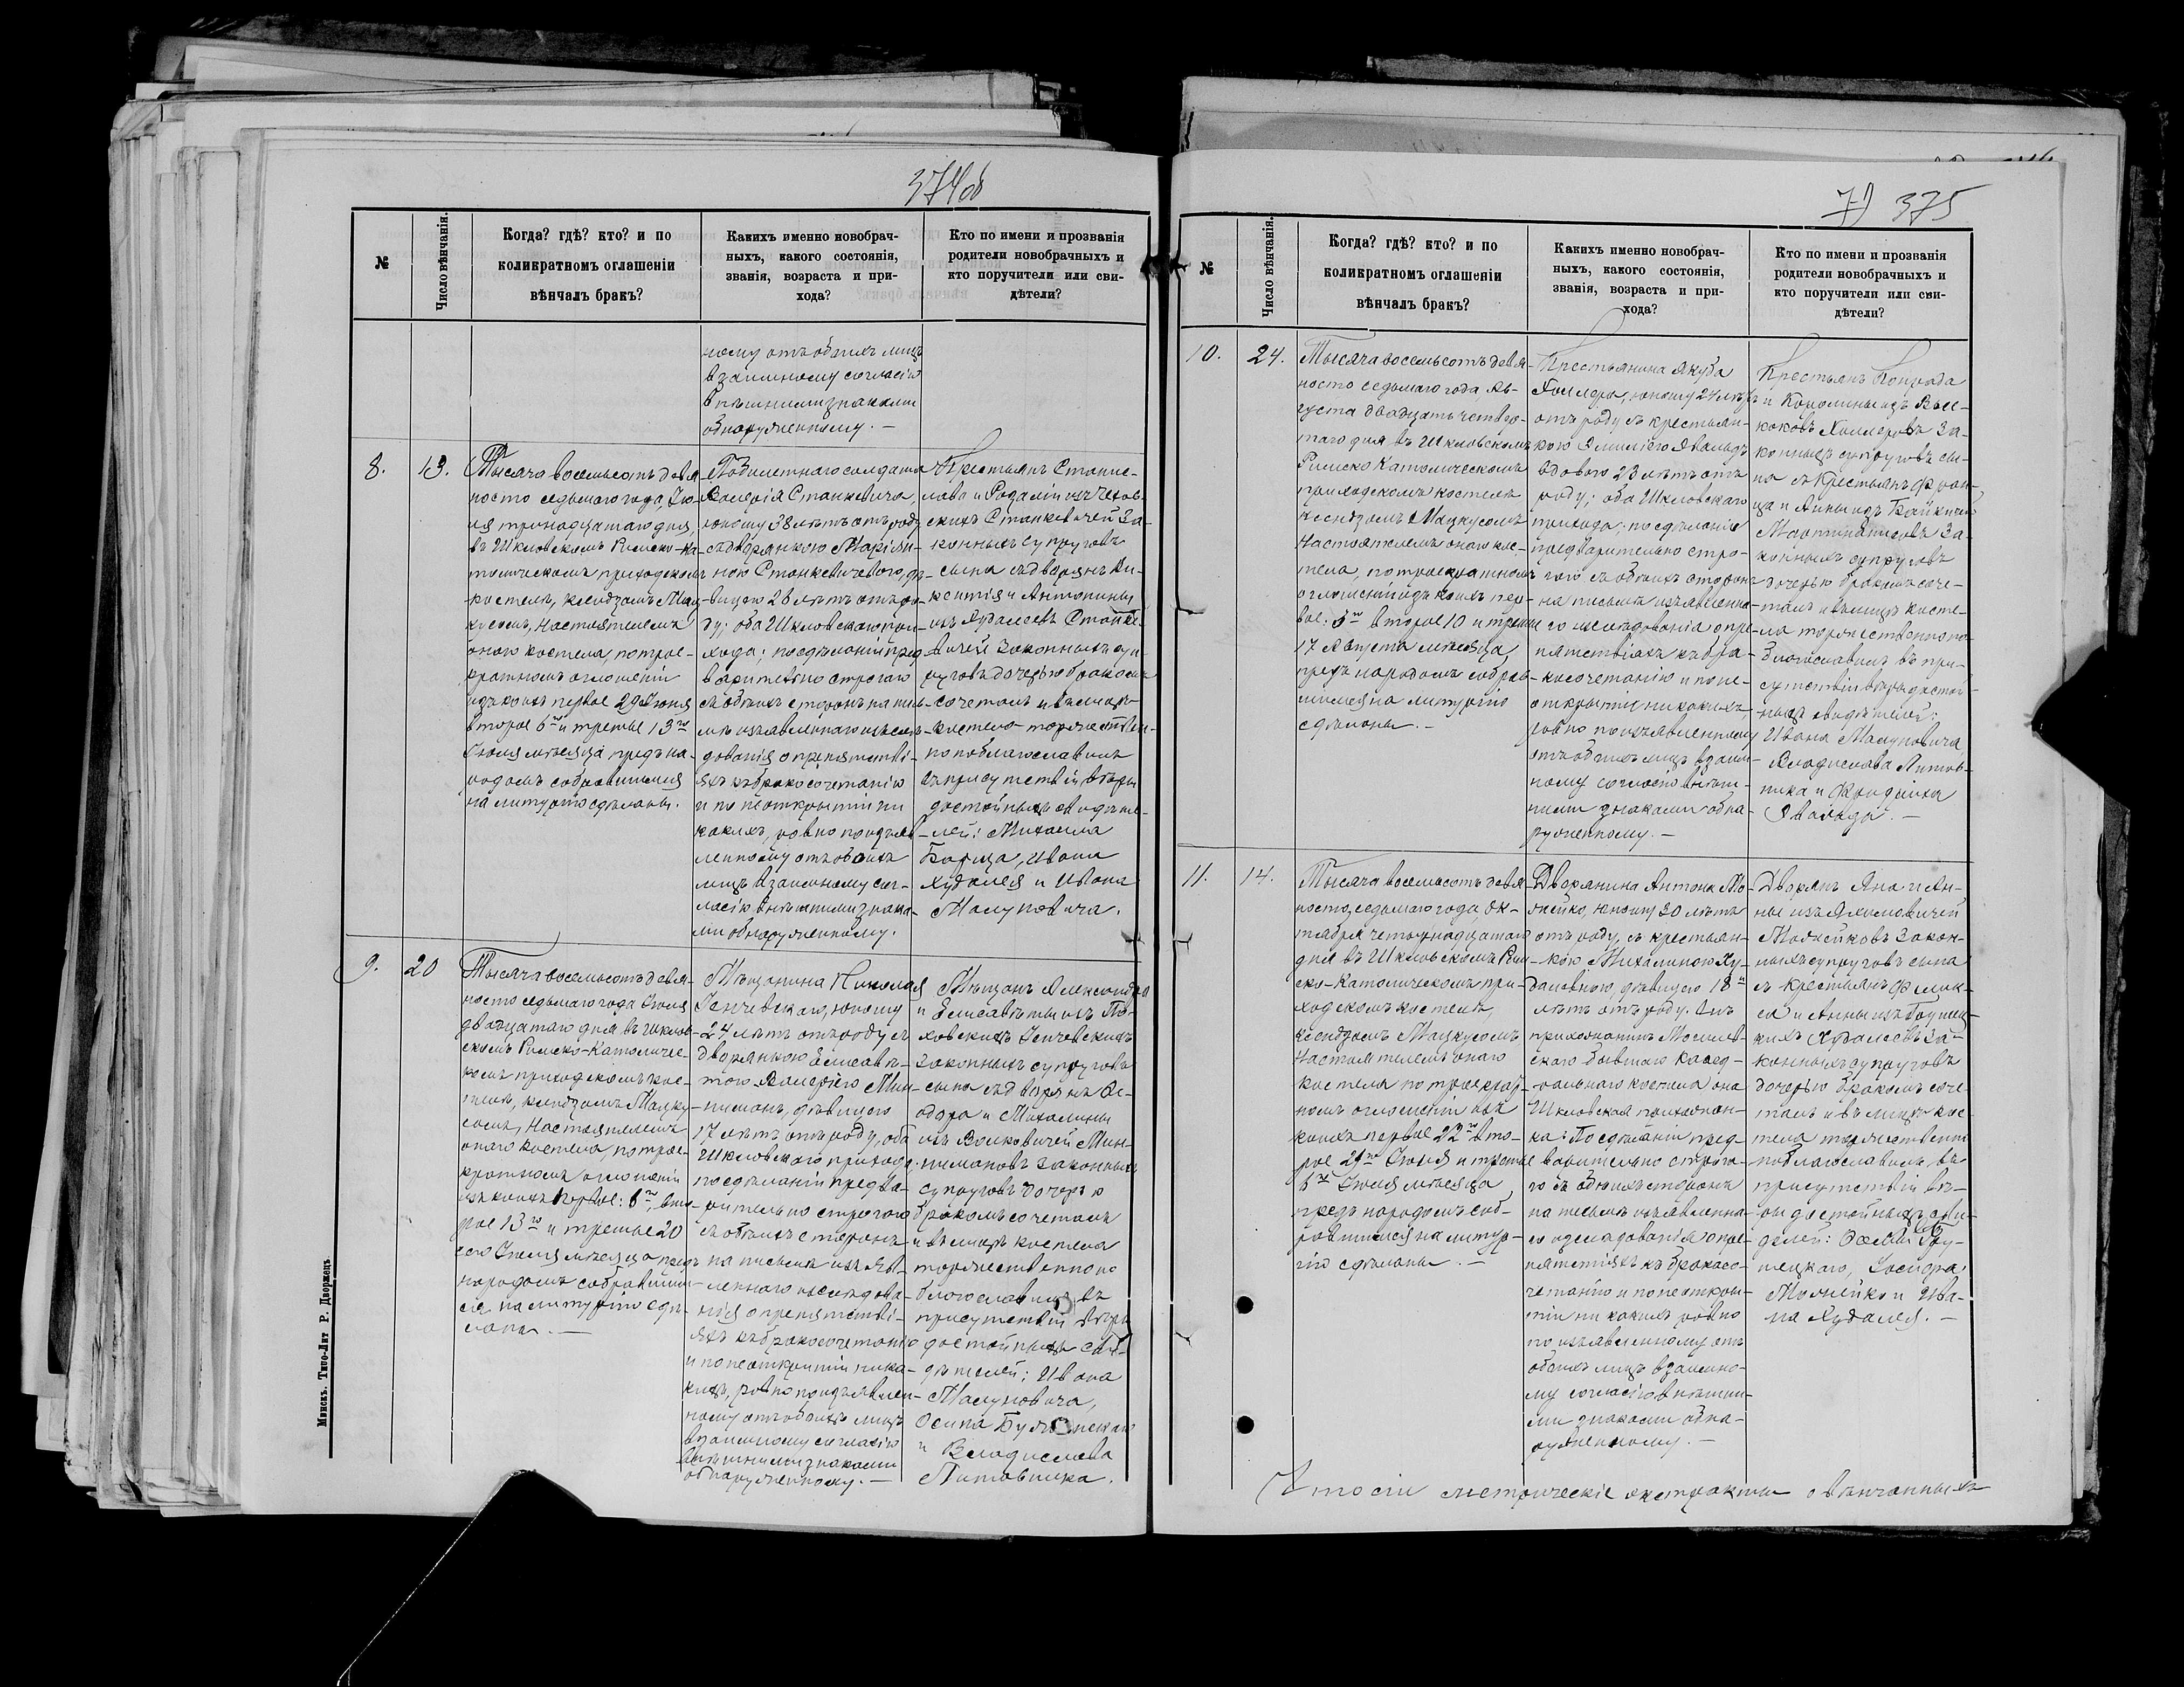 374об
№
Число вѣнчанія.
Когда? гдѣ? кто? и по
коликратномъ оглашеніи
вѣнчалъ бракъ?
Какихъ именно новобрач-
ныхъ, какого состоянія,
званія, возраста и при-
хода?
Кто по имени и прозванія
родители новобрачныхъ и
кто поручители или сви-
дѣтели?
ному отъ обоихъ лицъ
взаимному согласію
внѣшними знаками
обнаруженному. —
8.
13.
Тысяча восемьсотъ девя-
носто седьмаго года, Iю-
ля тринадцатаго дня,
въ Шкловскомъ Римско-Ка-
толическомъ приходскомъ
костелѣ, ксендзомъ Мац-
кусомъ, Настоятелемъ
онаго костела, по трое-
кратномъ оглашеніи
изъ коихъ первое 29 Iюня
второе 6го и третье 13го
Iюля мѣсяца предъ на-
родомъ собравшимся
на литургію сдѣланы.
Побилетнаго солдата
Валерія Станкевича,
юношу 38 лѣтъ отъ роду
съ дворянкою Маріян-
ною Станкевичевою, дѣ-
вицею 28 лѣтъ отъ ро-
ду; оба Шкловскаго при-
хода; по сдѣланіи пред-
варительно строгаго
съ обоихъ сторонъ на пись-
мѣ изъявленнаго изслѣ-
дованія о препятстві-
яхъ къ бракосочетанію
и по неоткрытіи ни
какихъ, ровно по изъяв-
ленному отъ обоихъ
лицъ взаимному сог-
ласію внѣшними знака-
ми обнаруженному.
Крестьянъ Станис-
лава и Розаліи изъ Чехов-
скихъ Станкевичей за-
конныхъ супруговъ
сына съ дворянъ Ви-
кентія и Антонины
изъ Худалеевъ Станке-
вичей законныхъ суп-
руговъ дочерью бракомъ
сочеталъ и въ лицѣ
костела торжествен-
но поблагославилъ
въ присутствіи вѣры
достойныхъ свидѣте-
лей: Михаила
Барща, Ивана
Худалея и Ивана
Малуновича.
9.
20
Тысяча восемьсотъ девя-
носто седьмаго года Iюля
двадцатаго дня въ Шклов-
скомъ Римско-Католичес-
комъ приходскомъ кос-
телѣ, ксендзомъ Мацку-
сомъ, Настоятелемъ
онаго костела по трое-
кратномъ оглашеніи
изъ коихъ первое: 6го, вто-
рое 13го и третье 20
сего Iюля мѣсяца предъ
народомъ собравшим-
ся на литургію сдѣ-
ланы. —
Мѣщанина Николая
Генчевскаго, юношу
24 лѣтъ отъ роду съ
дворянкою Елисавѣ-
тою Валеріею Мин-
ниманъ, дѣвицею
17 лѣтъ отъ роду, оба
Шкловскаго прихода
по сдѣланіи предва-
рительно строгаго
съ обоихъ сторонъ
на письмѣ изъяв-
леннаго изслѣдова-
нія о препятстві-
яхъ къ бракосочетанію
и по неоткрытіи ника-
кихъ, ровно по изъявлен-
ному отъ обоихъ лицъ
взаимному согласію
внѣшними знаками
обнаруженному. —
Мѣщанъ Александра
и Елисаветы изъ По-
ховскихъ Генчевскихъ
законныхъ супруговъ
сына съ дворянъ Ѳе-
одора и Михалины
изъ Волковичей Мин-
нимановъ законныхъ
супруговъ дочерью
бракомъ сочеталъ
и въ лицѣ костела
торжественно по
благославилъ въ
присутствіи вѣры
достойныхъ сви-
дѣтелей: Ивана
Малуновича,
Осипа
и Владислава
Литовника.
Минскъ. Типо-Лит Р. Дворжецъ
7) 375
№
Число вѣнчанія.
Когда? гдѣ? кто? и по
коликратномъ оглашеніи
вѣнчалъ бракъ?
Какихъ именно новобрач-
ныхъ, какого состоянія,
званія, возраста и при-
хода?
Кто по имени и прозванія
родители новобрачныхъ и
кто поручители или сви-
дѣтели?
10.
24.
Тысяча восемьсотъ девя-
носто седьмаго года Ав-
густа двадцать четвер-
таго дня въ Шкловскомъ
Римско Католическомъ
приходскомъ костелѣ
ксендзомъ Мацкусомъ
Настоятелемъ онаго кос-
тела, по троекратномъ
оглашеніи изъ коихъ пер-
вое: 3го второе 10 и третье
17 Августа мѣсяца,
предъ народомъ собрав-
шимся на литургію
сдѣланы. —
Крестьянина Якуба
Холлера, юношу 24 лѣтъ
отъ роду съ крестьян-
кою Эмиліею Эвальдъ
вдовою 23 лѣтъ отъ
роду; оба Шкловскаго
прихода; по сдѣланіи
предварительно стро-
гаго съ обоихъ сторонъ
на письмѣ изъявленна-
го изслѣдованія о пре-
пятствіяхъ къ бра-
косочетанію и по не-
открытіи никакихъ,
ровно по изъявленному
отъ обоихъ лицъ взаим-
ному согласію внѣш-
ними знаками обна-
руженному. —
Крестьянъ Конрада
и Каролины изъ Вы-
коковъ Холлеровъ за-
конныхъ супруговъ сы-
на съ Крестьянъ Фран-
ца и Анны изъ
за-
конныхъ супруговъ
дочерью бракомъ соче-
талъ и въ лицѣ косте-
ла торжественно по-
благославилъ въ при-
сутствіи вѣры достой-
ныхъ свидѣтелей:
Ивана Малуновича,
Владислава Литов-
ника и Фридриха
Эвальда. —
11.
14.
Тысяча восемьсотъ девя-
носто седьмаго года, Ок-
тября четырнадцатаго
дня въ Шкловскомъ Рим-
ско-Католическомъ при-
ходскомъ костелѣ,
ксендзомъ Мацкусомъ
Настоятелемъ онаго
костела по троекрат-
номъ оглашеніи изъ
коихъ первое 22го вто-
рое 29го Iюня и третье
6го Iюля мѣсяца
предъ народомъ соб-
равшимся на литур-
гію сдѣланы. —
Дворянина Антона Мо-
жейко, юношу 30 лѣтъ
отъ роду, съ крестьян-
кою Михалиною Ху-
далевною, дѣвицею 18и
лѣтъ отъ роду. Онъ
прихожанинъ Могилев-
скаго бывшаго Каѳед-
ральнаго костела она
Шкловская прихожан-
ка: По сдѣланіи пред-
варительно строга-
го съ обоихъ сторонъ
на письмѣ изъявленна-
го изслѣдованія о пре-
пятствіяхъ къ бракосо-
четанію и по неоткры-
тіи ни какихъ ровно
по изъявленному отъ
обоихъ лицъ взаимно-
му согласію внѣшни-
ми знаками обна-
руженному. —
Дворянъ Яна и Ан-
ны изъ Якимовичей
Можейковъ закон-
ныхъ супруговъ сына
съ Крестьянъ Фелик-
са и Анны изъ
Худалеевъ за-
конныхъ супруговъ
дочерью бракомъ соче-
талъ и въ лицѣ кос-
тела торжественно
поблагославилъ въ
присутствіи вѣ-
ры достойныхъ сви-
дѣтелей:
Iосифа
Можейки и Ива-
на Худалея. —
Что сіи метрическіе экстракты о вѣнчанныхъ